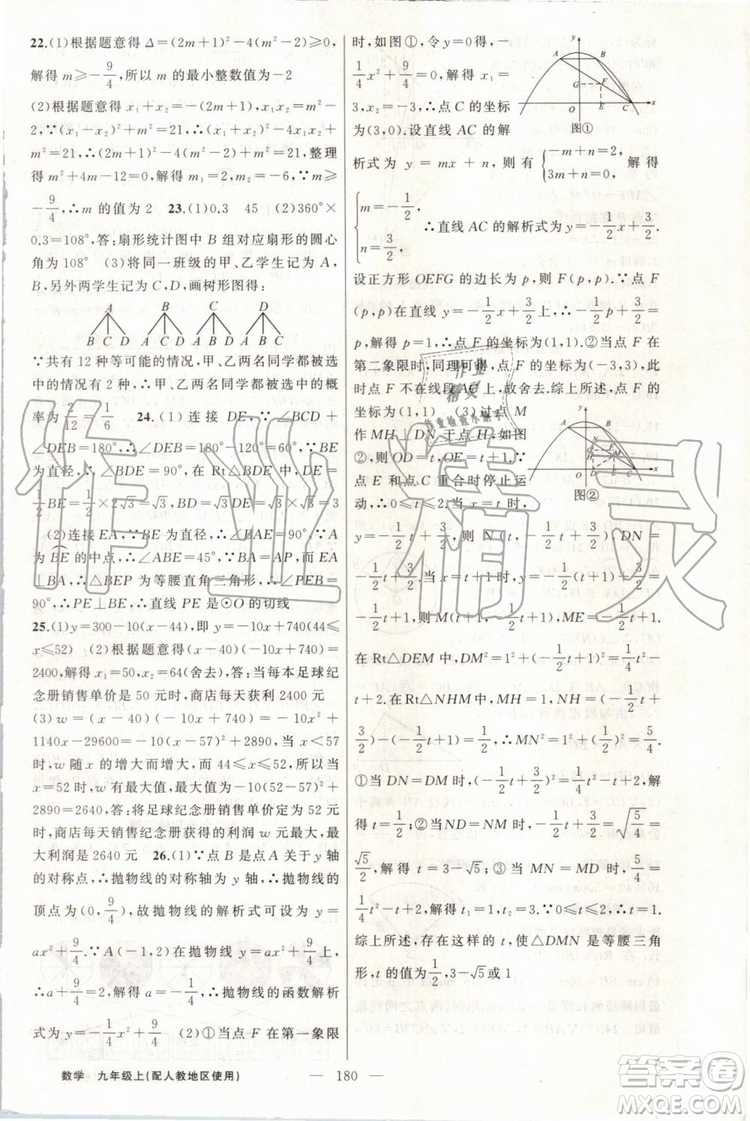 22.(1)根据题意得 Δ=(2m+1)²-4(m²-2)≥0,
解得 m≥-9/4,所以 m 的最小整数值为-2
(2)根据题意得 x₁+x₂=-(2m+1),x₁x₂=m²-
2,∵(x₁-x₂)²+m²=21,∴(x₁+x₂)²-4x₁x₂+
m²=21,∴(2m+1)²-4(m²-2)+m²=21,整理
得 m²+4m-12=0,解得 m₁=2,m₂=-6,∵m≥-
9/4,∴m 的值为 2 23.(1)0.3 45 (2)360°×
0.3=108°,答:扇形统计图中 B 组对应扇形的圆心
角为 108° (3)将同一班级的甲、乙学生记为 A、
B,另外两学生记为 C、D,画树形图得:
A B C D
B C D A C D A B D A B C
∵共有 12 种等可能的情况,甲、乙两名同学都被选
中的情况有 2 种,∴甲、乙两名同学都被选中的概
率为2/12=1/6 24.(1)连接 DE,∵∠BCD+
∠DEB=180°,∴∠DEB=
∵BE 为直径,∴∠BDE=90°,在 Rt△BDE 中,DE=
1/2BE=1/2×2√3=√3,BD=√3DE=√3×√3=3
(2)连接 EA,∵BE 为直径,∴∠BAE=90°,∵A
是 BE 的中点,∴∠ABE=45°,∵BA=AP,EA
⊥BA,∴△BEP 为等腰直角三角形,∴∠PEB=
90°,∴PE⊥BE,∴直线 PE 是⊙O 的切线
25.(1)y=300-10(x-44),即 y=-10x+740(44≤
x≤52) (2)根据题意得(x-40)(-10x+740)=
2400,解得 x₁=50,x₂=64(舍去),答:当每本足球纪
念册销售单价是 50 元时,商店每天获利 2400 元
(3)w=(x-40)(-10x+740)=-10x²+
1140x-29600=-10(x-57)²+2890,当 x<57
时,w 随 x 的增大而增大,而 44≤x≤52,所以当
x=52 时,w 有最大值,最大值为-10(52-57)²+
2890=2640,答:将足球纪念册销售单价定为 52 元
时,商店每天销售纪念册获得的利润 w 元最大,最
大利润是 2640 元 26.(1)∵点 B 是点 A 关于 y 轴
的对称点,∴抛物线的对称轴为 y 轴,∴抛物线的
顶点为(0,9/4),故抛物线的解析式可设为 y=
ax²+9/4,∵A(-1,2)在抛物线 y=ax²+9/4 上,
∴a+9/4=2,解得 a=-1/4,∴抛物线的函数解析
式为 y=-1/4x²+9/4 (2)①当点 F 在第一象限
时,如图①,令 y=0 得,-
1/4x²+9/4=0,解得 x₁=
3,x₂=-3,∴点 C 的坐标
为(3,0).设直线 AC 的解
图①
析式为 y=mx+n,则有{-m+n=2, 3m+n=0, 解得
{m=-1/2, n=3/2, ∴直线 AC 的解析式为 y=-1/2x+3/2.
设正方形 OEFG 的边长为 p,则 F(p,p).∵点 F
(p,p)在直线 y=-1/2x+3/2上,∴-1/2p+3/2=
p,解得 p=1,∴点 F 的坐标为(1,1).②当点 F 在
第二象限时,同理可得:点 F 的坐标为(-3,3),此
时点 F 不在线段 AC 上,故舍去.综上所述,点 F 的
坐标为(1,1) (3)过点 M
作 MH⊥DN 于点 H,如图
②,则 OD=t,OE=t+1.∵
点 E 与点 C 重合时停止运
动,∴0≤t≤2.当 x=t 时,
图②
y=-1/2t+3/2,则 N(t,-1/2t+3/2),DN=
-1/2t+3/2,当 x=t+1 时,y=-1/2(t+1)+3/2=
-1/2t+1,则 M(t+1,-1/2t+1),ME=-1/2t+1.
在 Rt△DEM 中,DM²=1²+(-1/2t+1)²=1/4t²-
t+2.在 Rt△NHM 中,MH=1,NH=(-1/2t+
3/2)-(-1/2t+1)=1/2,∴MN²=1²+(1/2)²=5/4.
①当 DN=DM 时,(-1/2t+3/2)²=1/4t²-t+2,解
得 t=1/2;②当 ND=NM 时,-1/2t+3/2=√(5/4)=
√5/2,解得 t=3-√5;③当 MN=MD 时,5/4=
1/4t²-t+2,解得 t₁=1,t₂=3.∵0≤t≤2,∴t=1.
综上所述,存在这样的 t,使△DMN 是等腰三角
形,t 的值为1/2,3-√5或 1
数学 九年级上(配人教地区使用) — 180 —
作业精灵
答案圈
MXQE.COM